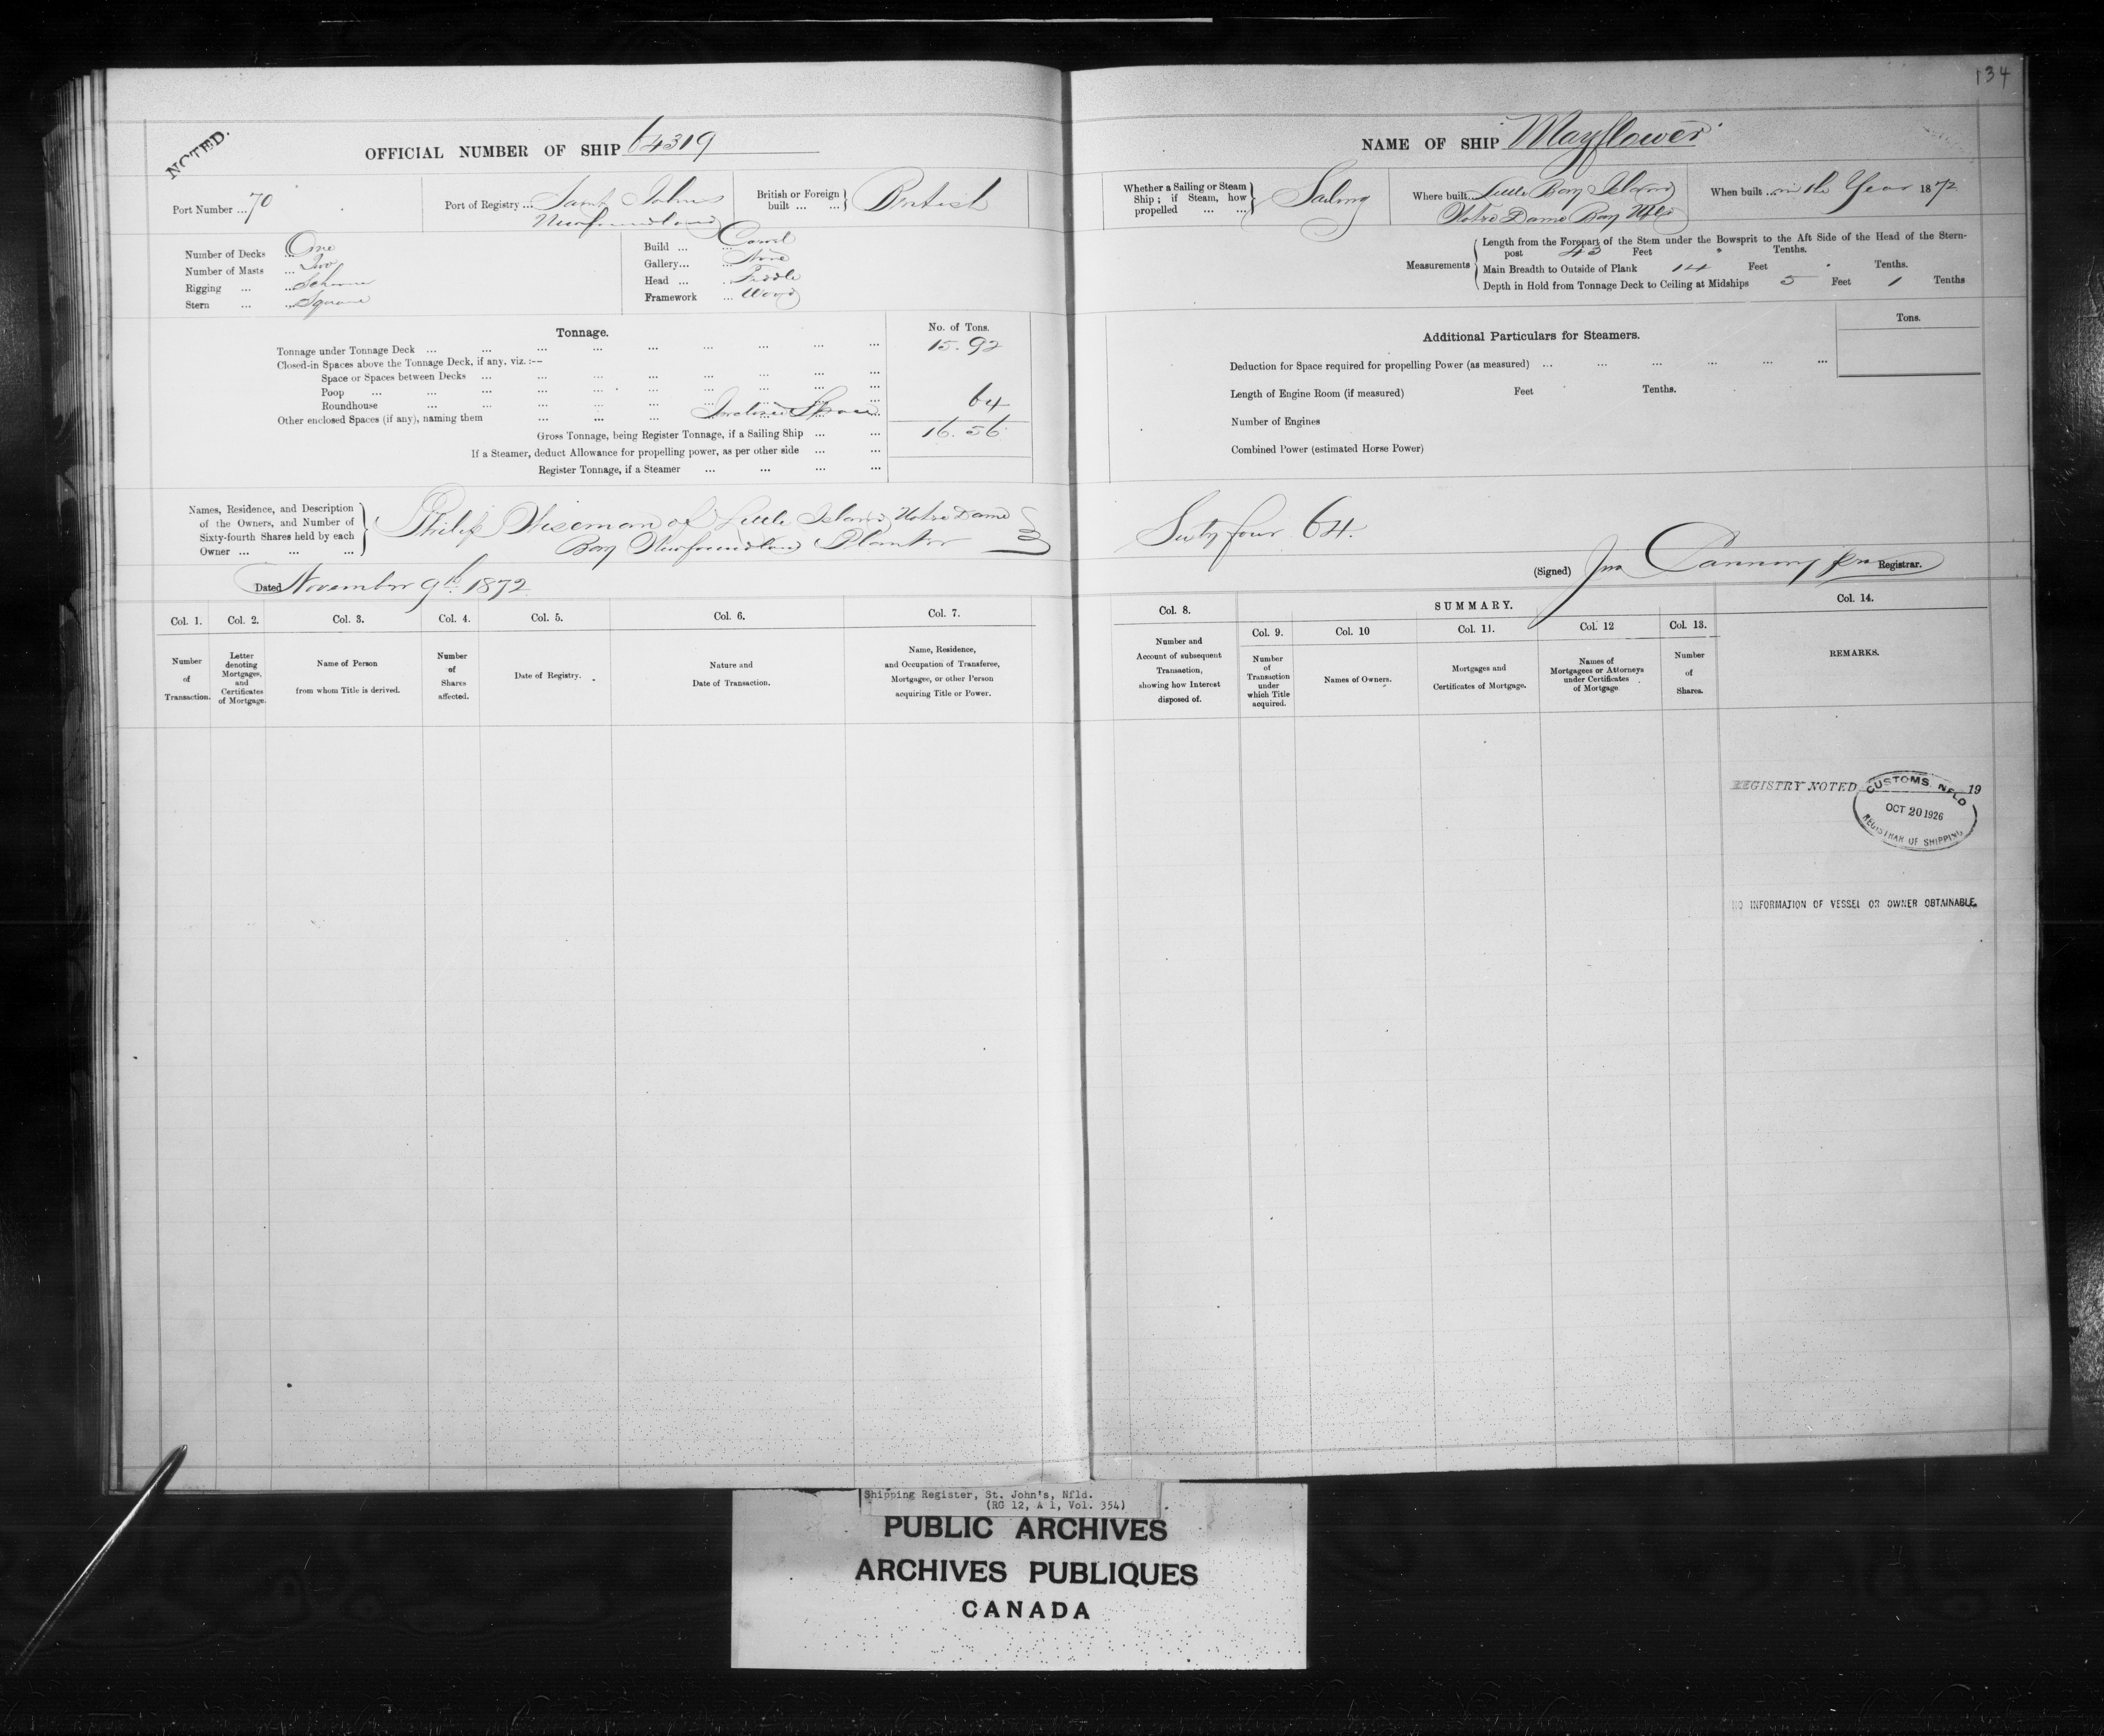 134
NOTED.
OFFICIAL NUMBER OF SHIP 64319
NAME OF SHIP "Mayflower"
Port Number ... 70
Port of Registry ... Saint Johns
Newfoundland
British or Foreign built ... ... } British
Whether a Sailing or Steam Ship; if Steam, how propelled ... ... } Sailing
Where built Little Bay Island
Notre Dame Bay Nfld
When built ... in the Year 1872
Number of Decks ... One
Number of Masts ... Two
Rigging ... ... Schooner
Stern ... ... Square
Build ... ... Carvel
Gallery... ... None
Head ... ... Fiddle
Framework ... Wood
Measurements
Length from the Forepart of the Stem under the Bowsprit to the Aft Side of the Head of the Stern-
post 43 Feet " Tenths.
Main Breadth to Outside of Plank 14 Feet " Tenths.
Depth in Hold from Tonnage Deck to Ceiling at Midships 5 Feet 1 Tenths
Tonnage.
No. of Tons.
Tonnage under Tonnage Deck ... 15.92
Closed-in Spaces above the Tonnage Deck, if any, viz.:—
Space or Spaces between Decks ...
Poop ...
Roundhouse ...
Other enclosed Spaces (if any), naming them ... Inclosed Space 64
Gross Tonnage, being Register Tonnage, if a Sailing Ship ... 16.56
If a Steamer, deduct Allowance for propelling power, as per other side ...
Register Tonnage, if a Steamer ...
Additional Particulars for Steamers.
Tons.
Deduction for Space required for propelling Power (as measured) ...
Length of Engine Room (if measured) Feet Tenths.
Number of Engines
Combined Power (estimated Horse Power)
Names, Residence, and Description
of the Owners, and Number of
Sixty-fourth Shares held by each
Owner ... ... ...
Philip Wiseman of Little Island Notre Dame
Bay Newfoundland Planter
Sixty four 64.
Dated November 9th 1872
(Signed) Jno Canning Registrar.
Col. 1. Col. 2. Col. 3. Col. 4. Col. 5. Col. 6. Col. 7.
Number of Transaction.
Letter denoting Mortgages, and Certificates of Mortgage.
Name of Person from whom Title is derived.
Number of Shares affected.
Date of Registry.
Nature and Date of Transaction.
Name, Residence, and Occupation of Transferee, Mortgagee, or other Person acquiring Title or Power.
Col. 8. SUMMARY. Col. 14.
Col. 9. Col. 10 Col. 11. Col. 12 Col. 13.
Number and Account of subsequent Transaction, showing how Interest disposed of.
Number of Transaction under which Title acquired.
Names of Owners.
Mortgages and Certificates of Mortgage.
Names of Mortgagees or Attorneys under Certificates of Mortgage
Number of Shares.
REMARKS.
REGISTRY NOTED 19
CUSTOMS, NFLD
OCT 20 1926
REGISTRAR OF SHIPPING
NO INFORMATION OF VESSEL OR OWNER OBTAINABLE.
Shipping Register, St. John's, Nfld.
(RG 12, A 1, Vol. 354)
PUBLIC ARCHIVES
ARCHIVES PUBLIQUES
CANADA